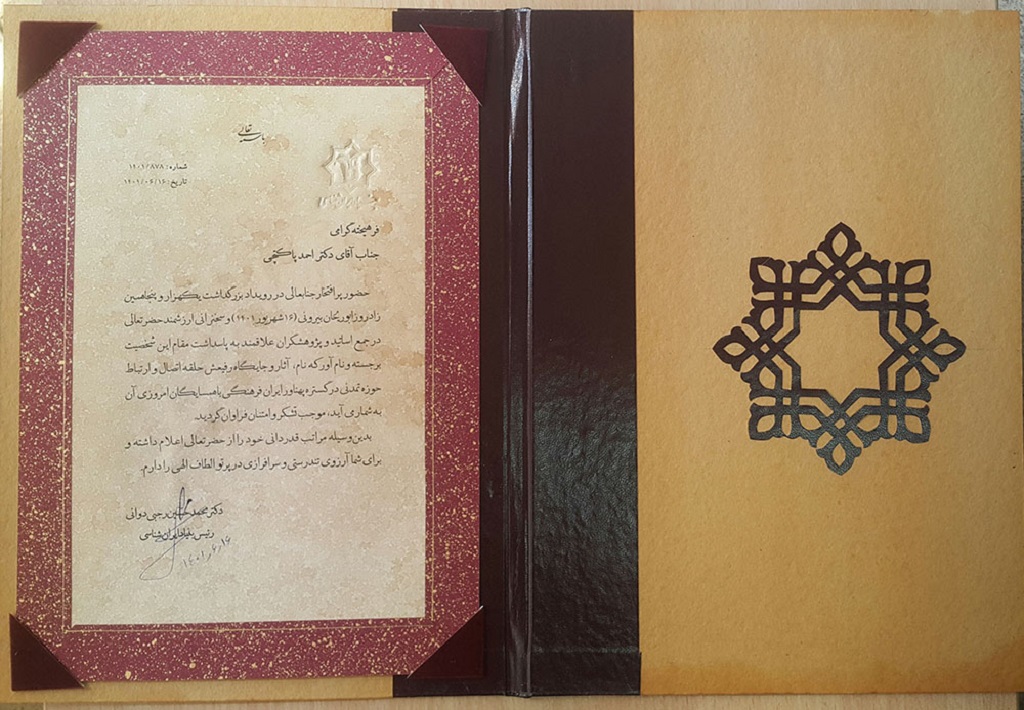 باسمه تعالی
شماره: ۱۴۰۱/۸۷۸
تاریخ: ۱۴۰۱/۰۶/۱۶
فرهیخته گرامی
جناب آقای دکتر احمد پاکتچی
حضور پرافتخار جنابعالی در رویداد بزرگداشت یکهزار و پنجاهمین
زادروز ابوریحان بیرونی (۱۶ شهریور ۱۴۰۱) و سخنرانی ارزشمند حضرتعالی
در جمع اساتید و پژوهشگران علاقمند به پاسداشت مقام این شخصیت
برجسته و نام آور که نام، آثار و جایگاه رفیعش حلقه اتصال و ارتباط
حوزه تمدنی در گستره پهناور ایران فرهنگی با همسایگان امروزی آن
به شمار می آید، موجب تشکر و امتنان فراوان گردید.
بدین وسیله مراتب قدردانی خود را از حضرتعالی اعلام داشته و
برای شما آرزوی تندرستی و سرافرازی در پرتو الطاف الهی را دارم.
دکتر محمدحسین رجبی دوانی
رئیس بنیاد ایران شناسی
۱۴۰۱٫۶٫۱۶